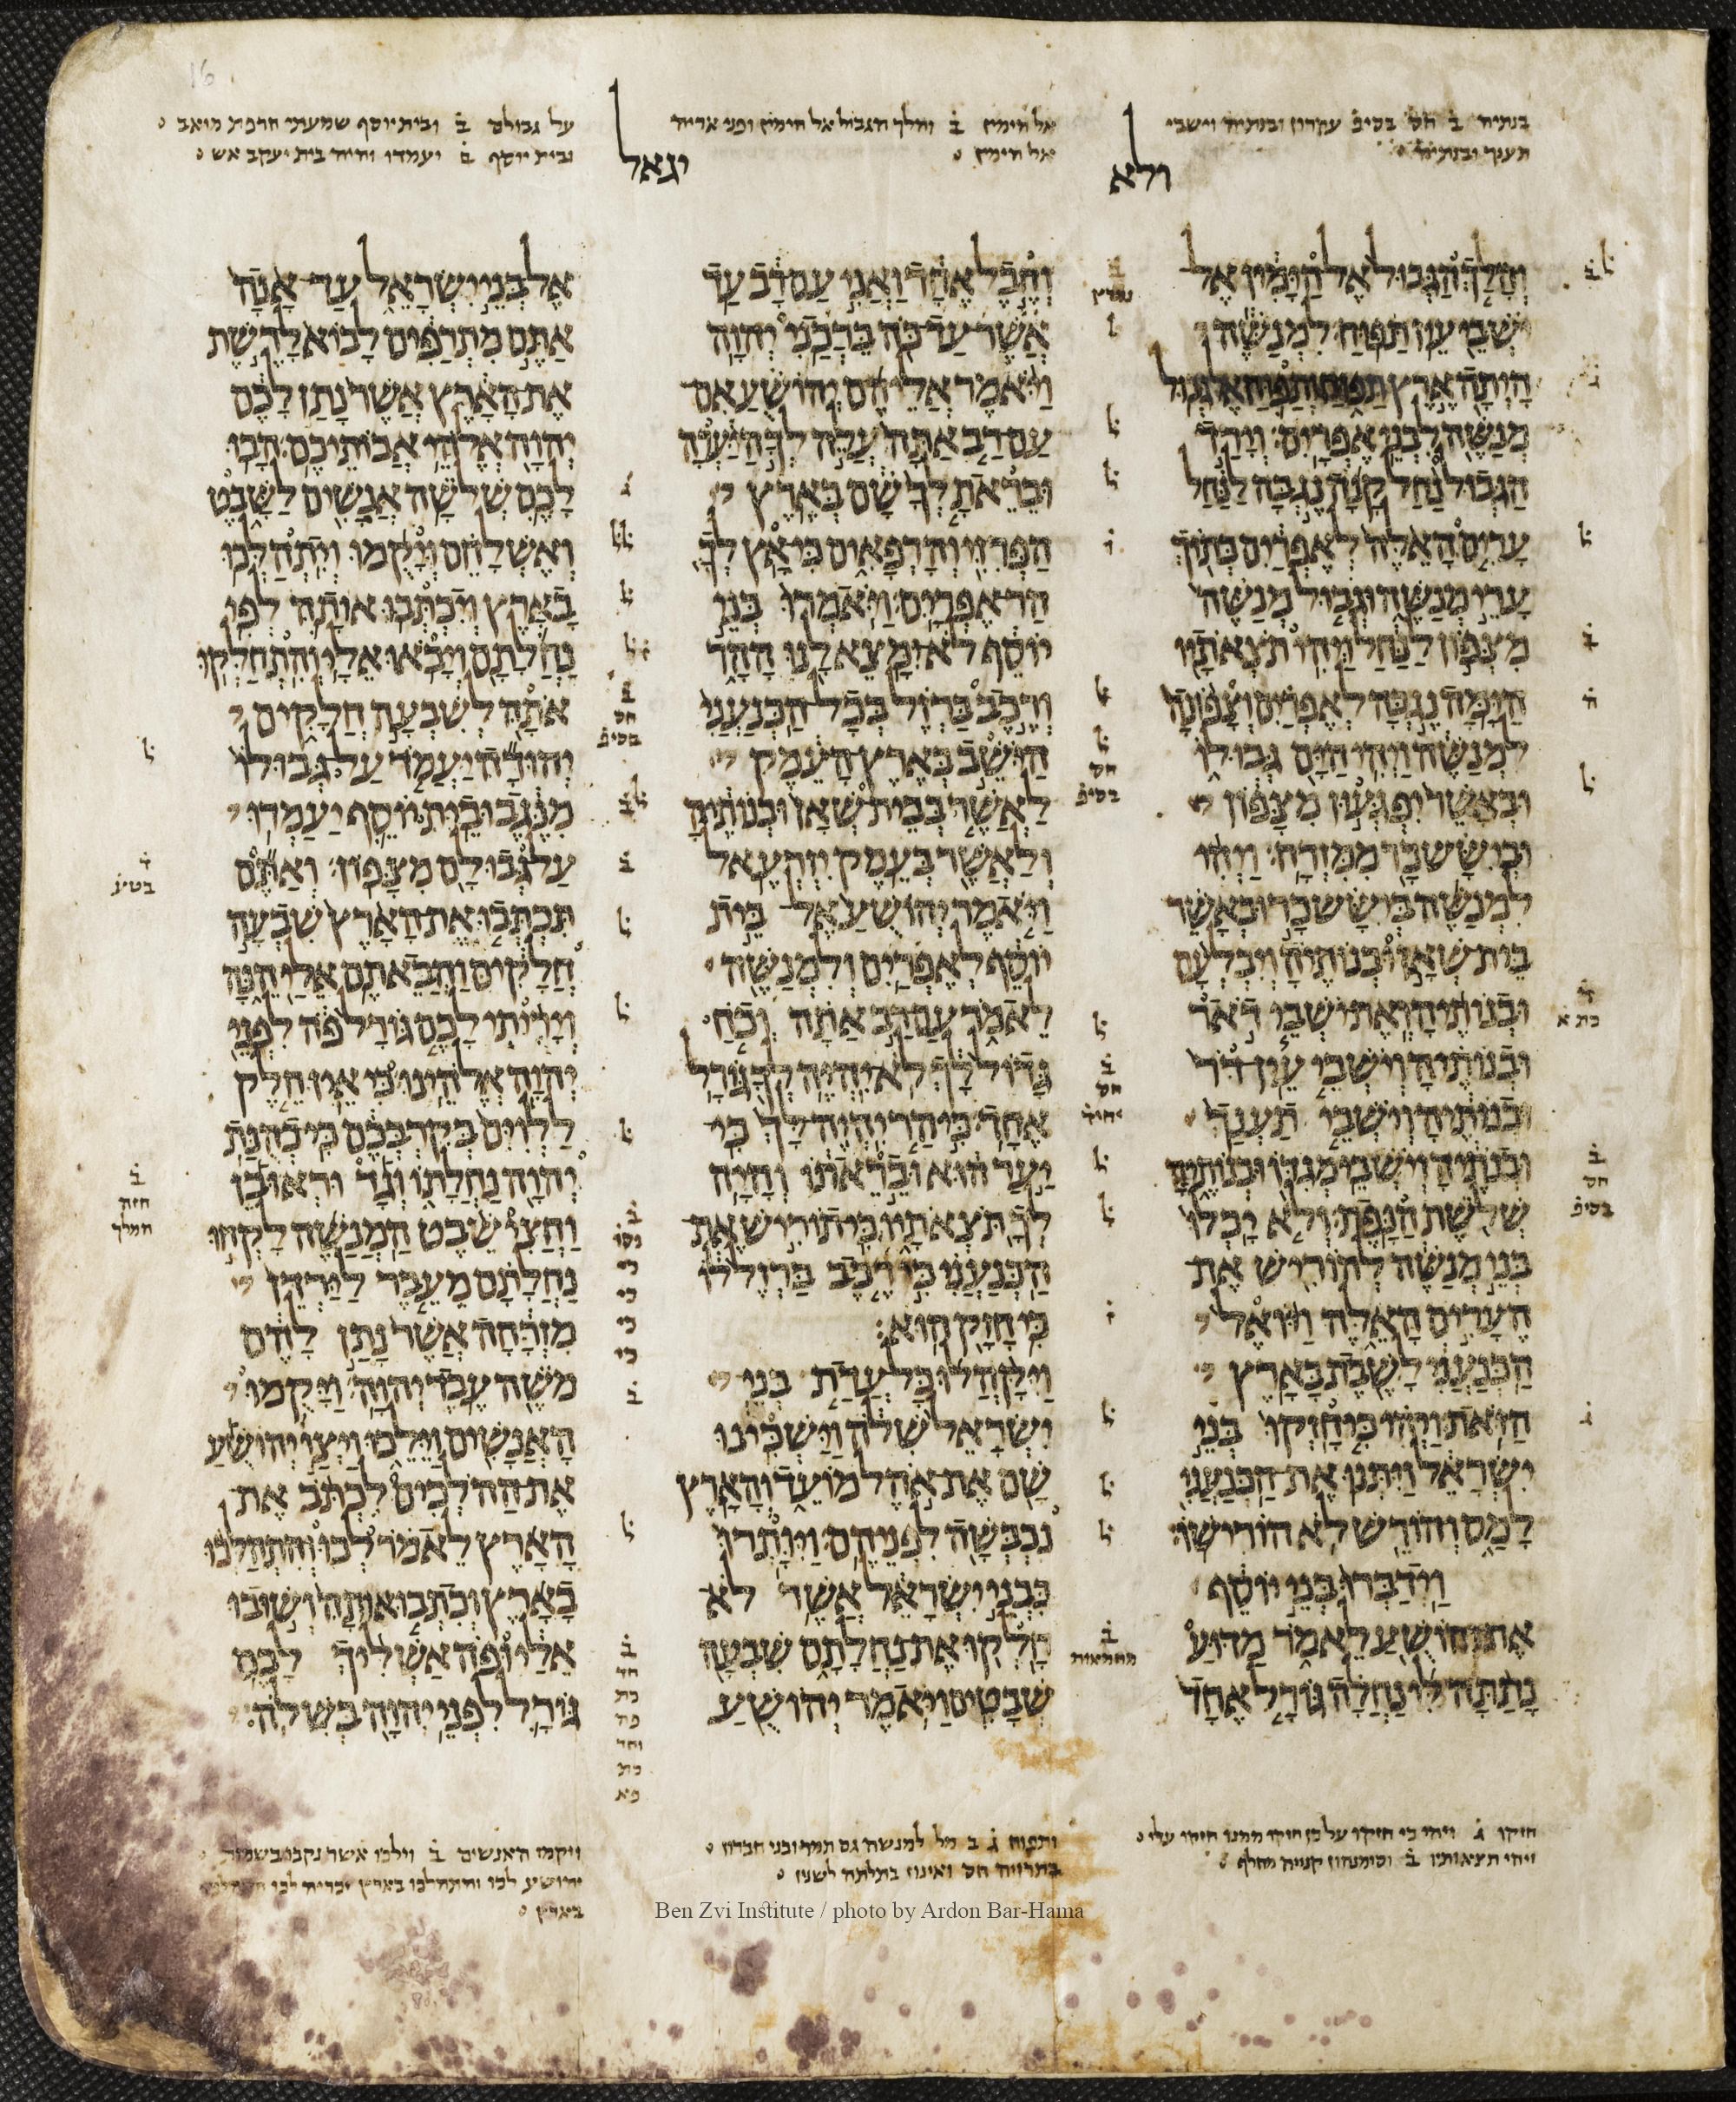 בנתיה ב חס בסיפ עקרון ובנתיה וישבי
תענך ובנתיה
ולא
אל הימין ב והלך הגבול אל הימין ופני אריה
אל הימין
יגאל
על גבולם ב ובית יוסף שמעתי חרפת מואב
ובית יוסף יעמדו והיה בית יעקב אש
והלך הגבול אל הימין אל
ישבי עין תפוח למנשה
היתה ארץ תפוח ותפוח אל גבול
מנשה לבני אפרים וירד
הגבול נחל קנה נגבה לנחל
ערים האלה לאפרים בתוך
ערי מנשה וגבול מנשה
מצפון לנחל ויהי תצאתיו
הימה נגבה לאפרים וצפונה
למנשה ויהי הים גבולו
ובאשר יפגעון מצפון
וביששכר ממזרח ויהי
למנשה ביששכר ובאשר
בית שאן ובנותיה ויבלעם
ובנותיה ואת ישבי דאר
ובנותיה וישבי עין דר
ובנתיה וישבי תענך
ובנתיה וישבי מגדו ובנותיה
שלשת הנפת ולא יכלו
בני מנשה להוריש את
הערים האלה ויואל
הכנעני לשבת בארץ
הזאת ויהי כי חזקו בני
ישראל ויתנו את הכנעני
למס והורש לא הורישו
וידברו בני יוסף
את יהושע לאמר מדוע
נתתה לי נחלה גורל אחד
וחבל אחד ואני עם רב עד
אשר עד כה ברכני יהוה
ויאמר אליהם יהושע אם
עם רב אתה עלה לך היערה
ובראת לך שם בארץ
הפרזי והרפאים כי אץ לך
הר אפרים ויאמרו בני
יוסף לא ימצא לנו ההר
ורכב ברזל בכל הכנעני
הישב בארץ העמק
לאשר בבית שאן ובנותיה
ולאשר בעמק יזרעאל
ויאמר יהושע אל בית
יוסף לאפרים ולמנשה
לאמר עם רב אתה וכח
גדול לך לא יהיה לך גורל
אחד כי הר יהיה לך כי
יער הוא ובראתו והיה
לך תצאתיו כי תוריש את
הכנעני כי רכב ברזל לו
כי חזק הוא
ויקהלו כל עדת בני
ישראל שלה וישכינו
שם את אהל מועד והארץ
נכבשה לפניהם ויותרו
בבני ישראל אשר לא
חלקו את נחלתם שבעה
שבטים ויאמר יהושע
אל בני ישראל עד אנה
אתם מתרפים לבוא לרשת
את הארץ אשר נתן לכם
יהוה אלהי אבותיכם הבו
לכם שלשה אנשים לשבט
ואשלחם ויקמו ויתהלכו
בארץ ויכתבו אותה לפי
נחלתם ויבאו אלי והתחלקו
אתה לשבעה חלקים
יהודה יעמד על גבולו
מנגב ובית יוסף יעמדו
על גבולם מצפון ואתם
תכתבו את הארץ שבעה
חלקים והבאתם אלי הנה
ויריתי לכם גורל פה לפני
יהוה אלהינו כי אין חלק
ללוים בקרבכם כי כהנת
יהוה נחלתו וגד וראובן
וחצי שבט המנשה לקחו
נחלתם מעבר לירדן
מזרחה אשר נתן להם
משה עבד יהוה ויקמו
האנשים וילכו ויצו יהושע
את ההלכים לכתב את
הארץ לאמר לכו והתהלכו
בארץ וכתבו אותה ושובו
אלי ופה אשליך לכם
גורל לפני יהוה בשלה
חזקו ג ויהי כי חזקו על כן חזקו ממנו חזקו עלי
ויהי תצאותיו ב
ותפוח ג ב מל למנשה גם תמר ובני חברון
ויקמו האנשים ב וילכו אשר נקבו בשמות
יהושע לכו והתהלכו בארץ
בארץ
Ben Zvi Institute / photo by Ardon Bar-Hama